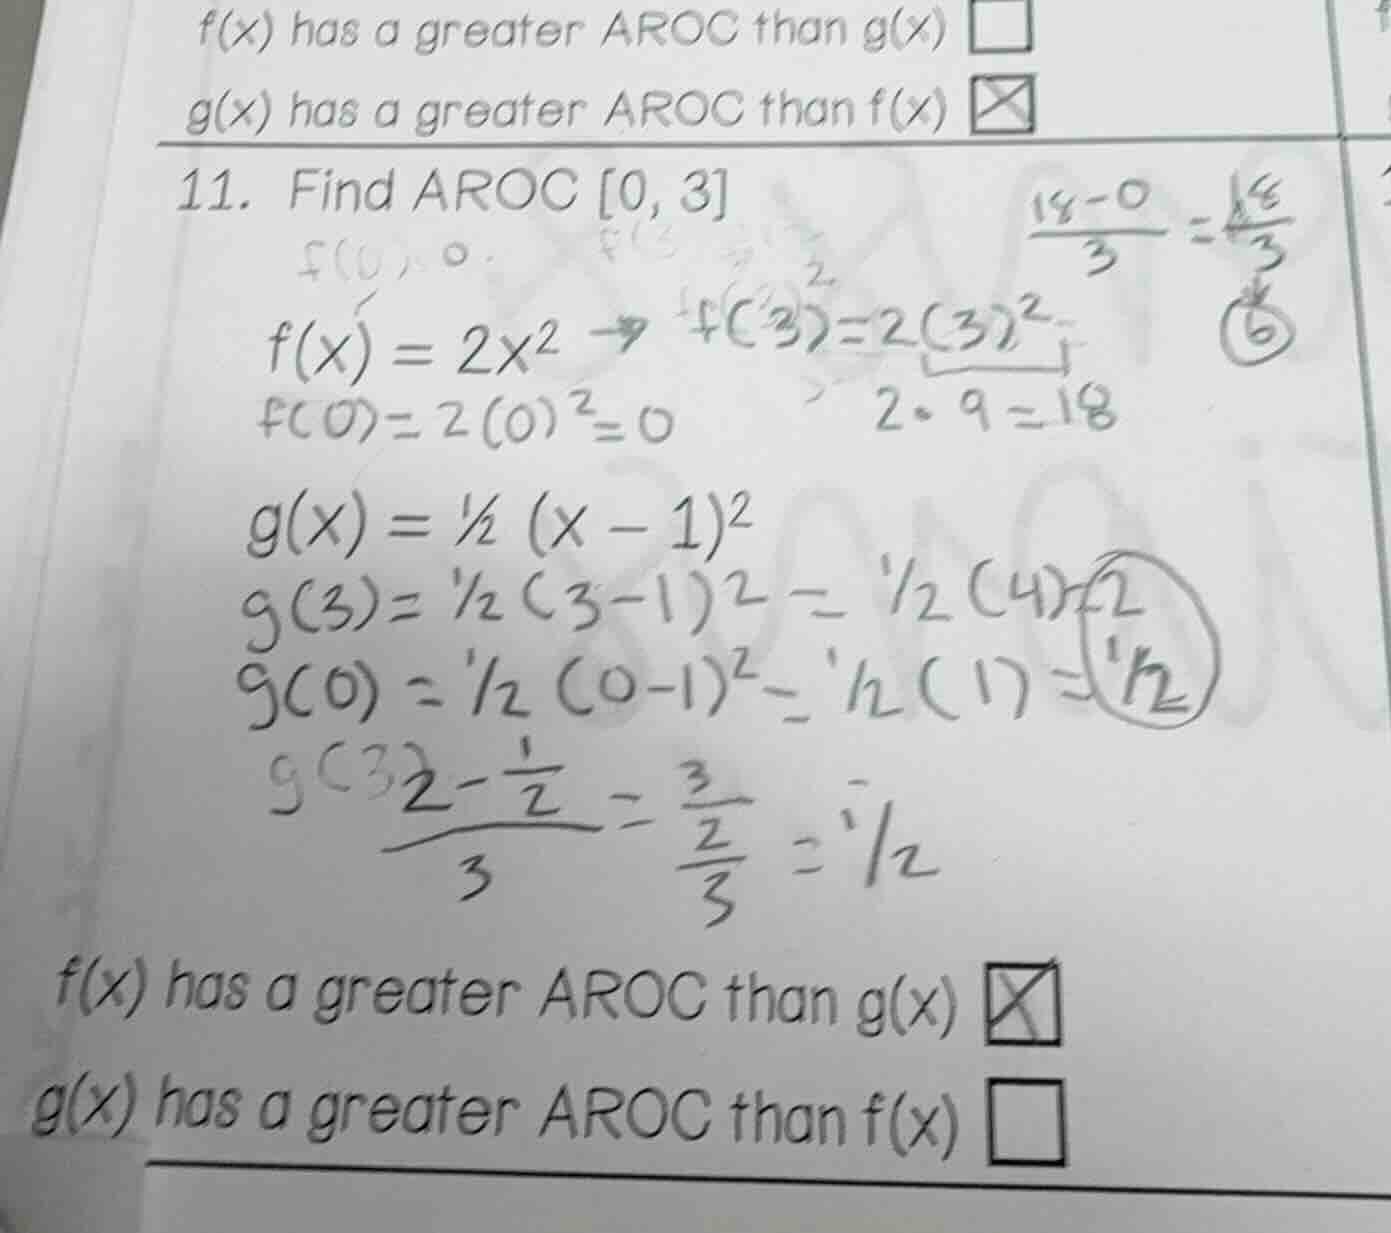 f(x) has a greater AROC than g(x)
g(x) has a greater AROC than f(x)
11. Find AROC [0, 3]
18-0/3 = 18/3
6
f(0) 0
f(3
f(x) = 2x² → f(3)² = 2(3)²
f(0) = 2(0)² = 0
2 • 9 = 18
g(x) = ½ (x – 1)²
g(3) = 1/2 (3-1)2 = 1/2 (4) = 2
g(0) = 1/2 (0-1)² = 1/2 (1) = 1/2
g(3) 2 - 1/2 / 3 = 3/2/3 = 1/2
f(x) has a greater AROC than g(x)
g(x) has a greater AROC than f(x)